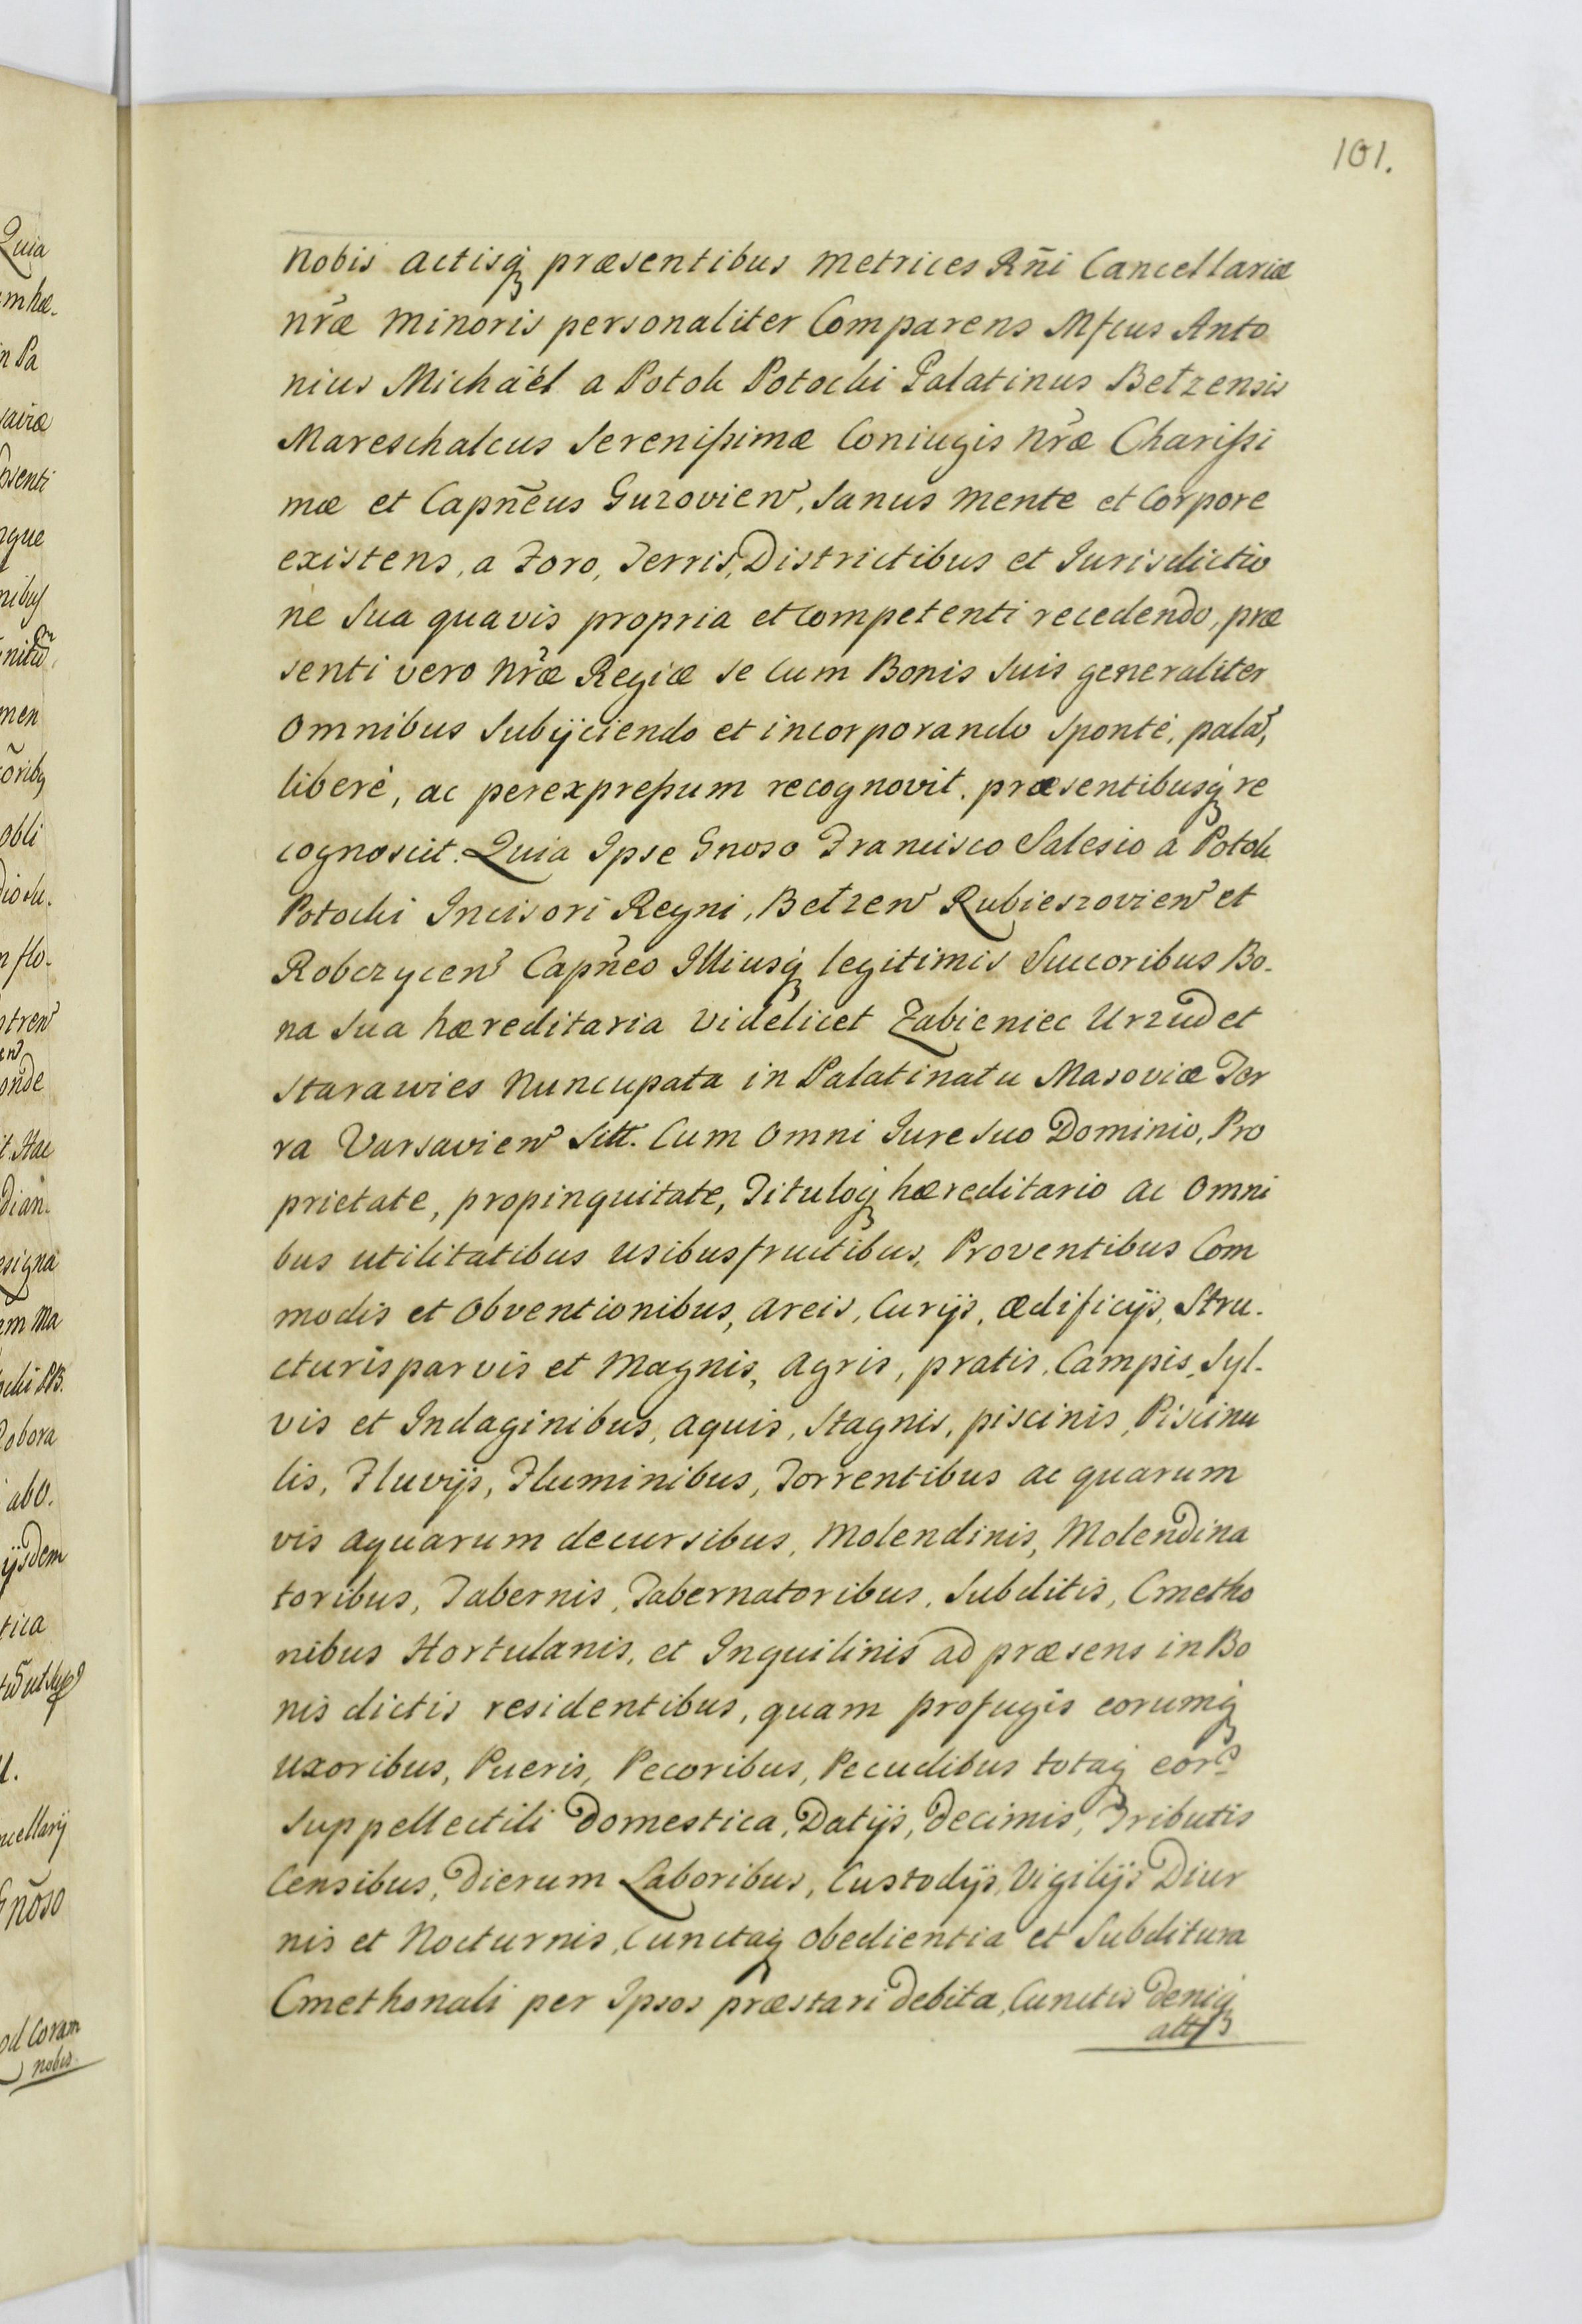 101.
nobis actisq́ præsentibus Metrices Rñi Cancellariæ
nr̃æ Minoris personaliter Comparens Mfcus Anto
nius Michäel a Potok Potocki Palatinus Betzensis
Mareschalcus Serenißimæ Coniugis Nr̃æ Charißi
mæ et Capñeus Guzovien̄, Sanus Mente et Corpore
existens, a Foro, Terris, Districtibus et Iurisdictio
ne Sua quavis propria et Competenti recedendo, præ
senti vero Nr̃æ Regiæ se Cum Bonis Suis generaliter
Omnibus Subijciendo et incorporando Sponté, palam̃,
liberé, ac perexpreßum recognovit, præsentibusq́ re
cognoscit. Quia Ipse Gnoso Francisco Salesio á Potok
Potocki Incisori Regni, Betzen̄ Rubieszovien̄ et
Robczycen̄ Capñeo Illiusq́ legitimis Succoribus Bo-
na Sua hæreditaria videlicet Zabieniec Urzud et
Starawies Nuncupata in Palatinatu Masoviæ Ter
ra Varsavien̄ Sitt. Cum Omni Iure Suo Dominio, Pro
prietate, propinquitate, Tituloq́ hæreditario ac Omni
bus utilitatibus usibusfructibus, Proventibus Com
modis et Obventionibus, areis, Curijs, ædificijs, Stru-
cturis parvis et Magnis, Agris, pratis, Campis, Syl-
vis et Indaginibus, aquis, Stagnis, piscinis, Piscinu
lis, Fluvijs, Fluminibus, Torrentibus ac quarum
vis aquarum decursibus, Molendinis, Molendina
toribus, Tabernis, Tabernatoribus, Subditis, Cmetho
nibus Hortulanis, et Inquilinis ad præsens in Bo
nis dictis residentibus, quam profugis eorumq́
uxoribus, Pueris, Pecoribus, Pecudibus totaq́ eor̃
Suppellectili Domestica, Datijs, Decimis, Tributis
Censibus, Dierum Laboribus, Custodijs, Vigilijs Diur
nis et Nocturnis, Cunctaq́ Obedientia et Subditura
Cmethonali per Ipsos præstari Debita, Cunctis Deniq́